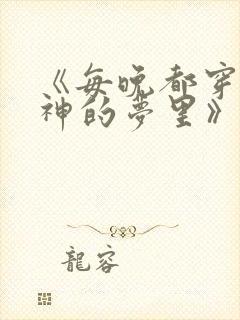 《每晚都穿
神的夢里》
龍容